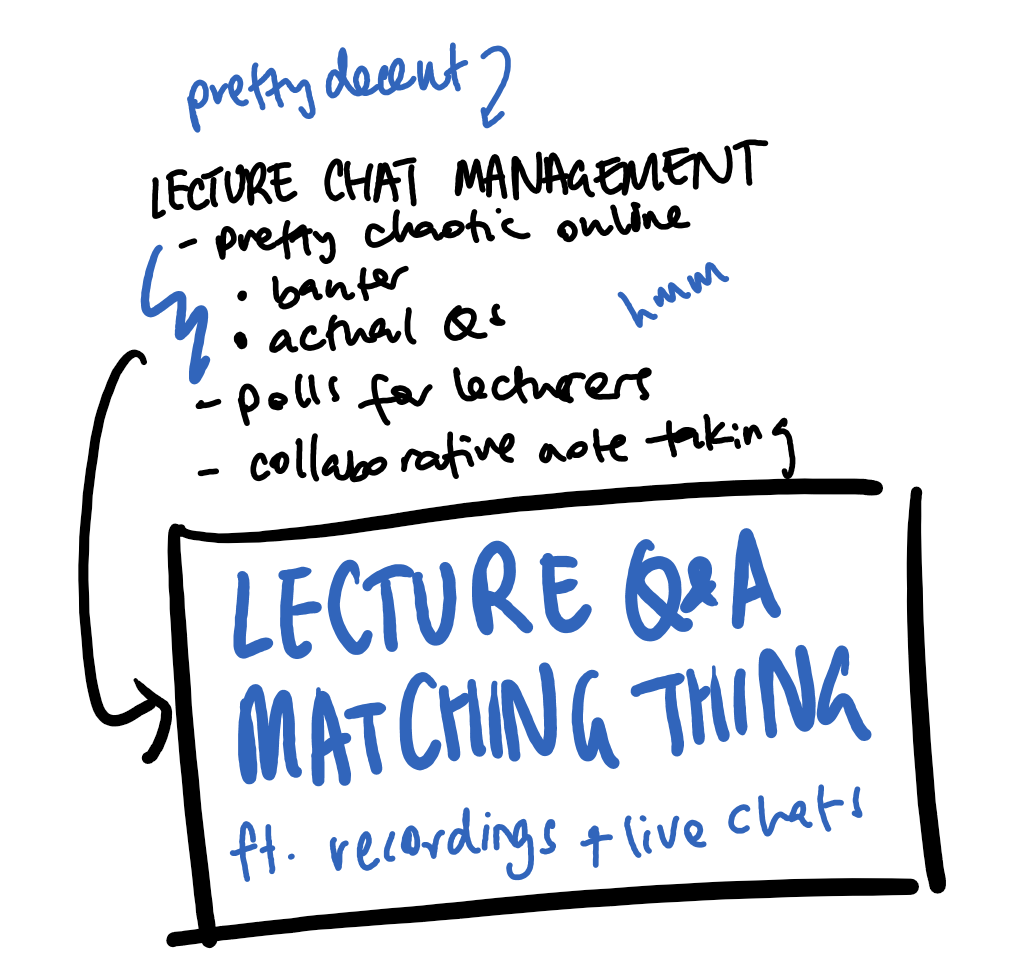 pretty decent
LECTURE CHAT MANAGEMENT
- pretty chaotic online
• banter
hmm
• actual Qs
- polls for lecturers
- collaborative note taking
LECTURE Q&A
MATCHING THING
ft. recordings + live chats